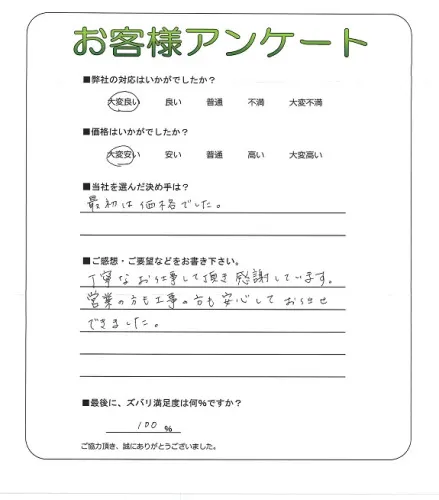 お客様アンケート
■弊社の対応はいかがでしたか？
大変良い 良い 普通 不満 大変不満
■価格はいかがでしたか？
大変安い 安い 普通 高い 大変高い
■当社を選んだ決め手は？
最初は価格でした。
■ご感想・ご要望などをお書き下さい。
丁寧なお仕事して頂き感謝しています。
営業の方も工事の方も安心してお任せ
できました。
■最後に、ズバリ満足度は何％ですか？
100 %
ご協力頂き、誠にありがとうございました。